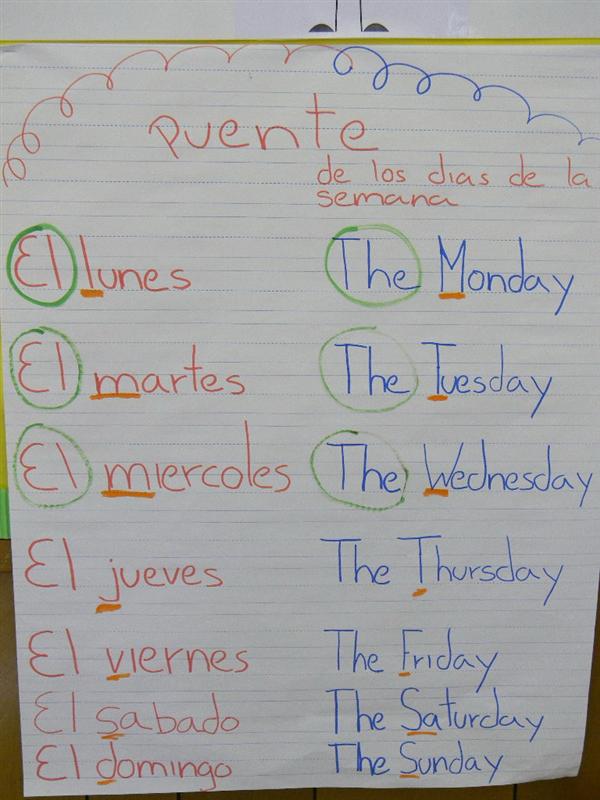 puente
de los dias de la
semana
El lunes The Monday
El martes The Tuesday
El miercoles The Wednesday
El jueves The Thursday
El viernes The Friday
El sabado The Saturday
El domingo The Sunday